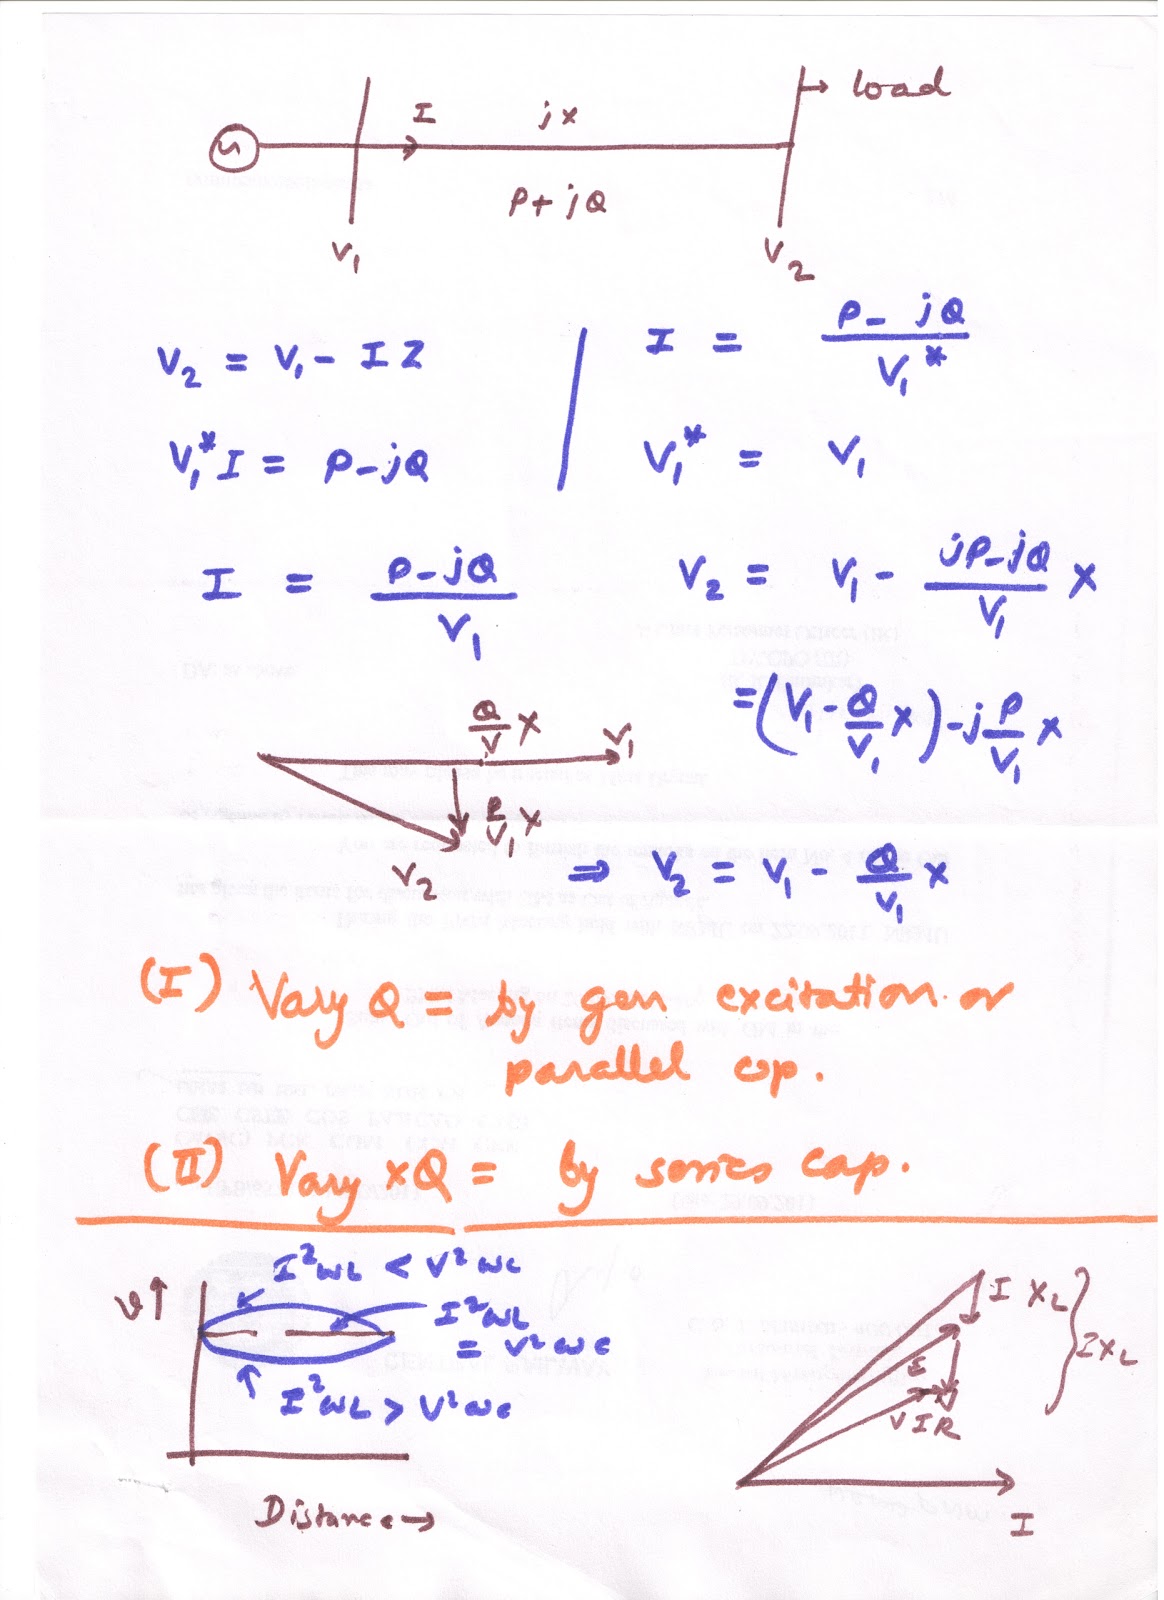 I jx → load
P+jQ
V₁ V₂
V₂ = V₁ - IZ
V₁* I = P-jQ
I = (P-jQ)/V₁*
V₁* = V₁
I = (P-jQ)/V₁
V₂ = V₁ - (jP-jQ)/V₁ X
= (V₁ - Q/V₁ X) - j P/V₁ X
Q/V X V₁
P/V₁ X
V₂
⇒ V₂ = V₁ - Q/V₁ X
(I) Vary Q = by gen excitation or
parallel cap.
(II) Vary XQ = by series cap.
V↑
I²ωL < V²ωc
I²ωL
= V²ωc
I²ωL > V²ωc
Distance →
I X_L
IX_L
E
V IR
I